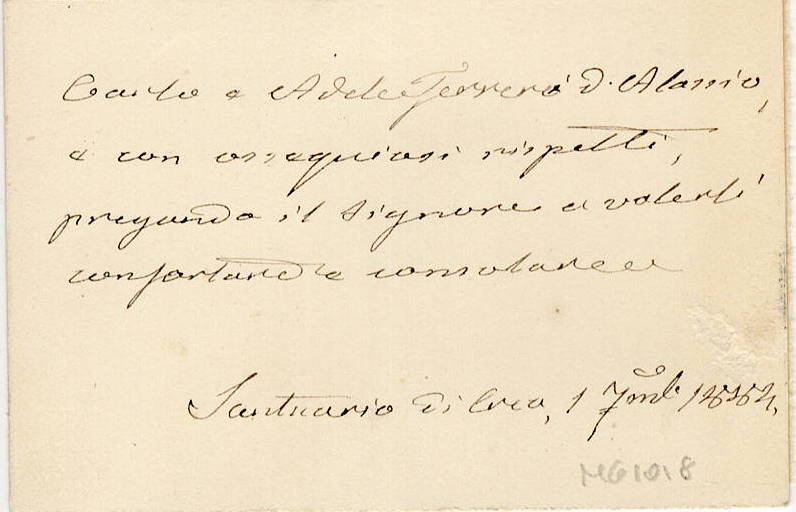 Carlo e Adele Ferrero D. Alassio,
e con ossequiosi rispetti,
pregando il Signore a volerli
confortare e consolare
Santuario di Crea, 1 7mb
MG1018